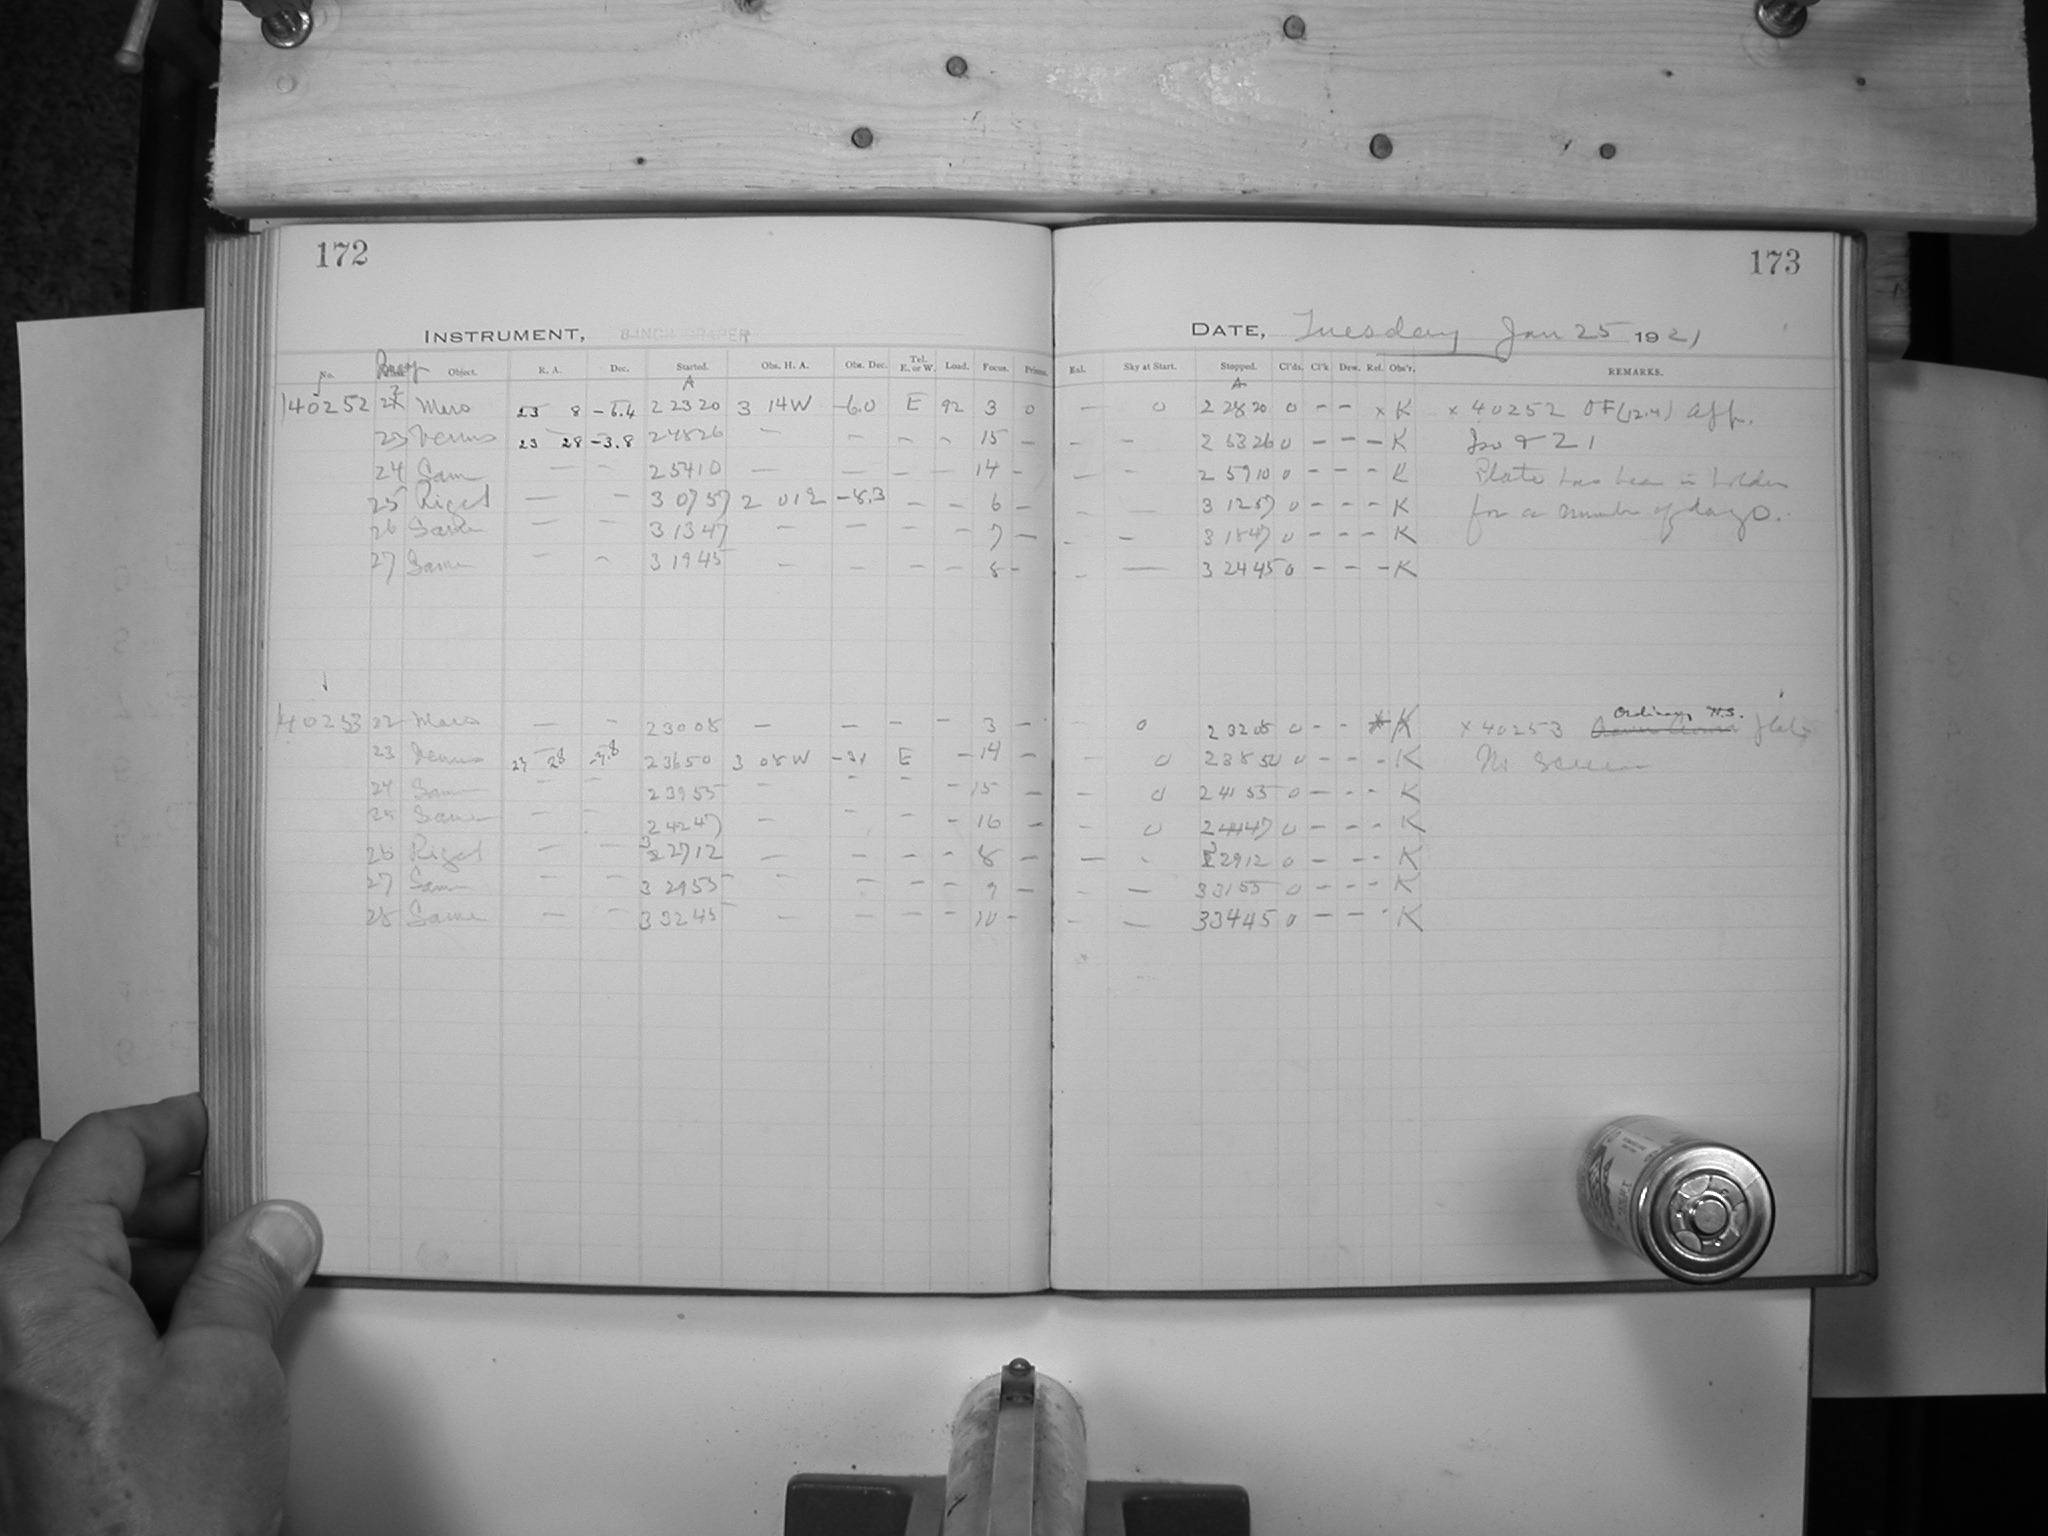 172
173
INSTRUMENT, 8 INCH DRAPER
DATE, Tuesday Jan 25 1921
No. Object. R. A. Dec. Started. Obs. H. A. Obs. Dec. Tel. E. or W. Load. Focus. Prisms. Eal. Sky at Start. Stopped. Cl'ds. Cl'k Dew. Ref. Obs'r. REMARKS.
A A
140252 22 Mars 23 8 -6.4 2 23 20 3 14 W -6.0 E 92 3 0 - 0 2 28 20 0 - - x K x 40252 OF (12.4) aff.
23 Venus 23 28 -3.8 2 48 26 - - - - 15 - - - 2 53 26 0 - - - K Iso + 21
24 Same - - 2 54 10 - - - - 14 - - - 2 59 10 0 - - - K Plate has been in holder
25 Rigel - - 3 07 57 2 01 -8.3 - - 6 - - - 3 12 57 0 - - - K for a number of days.
26 Same - - 3 13 47 - - - - 7 - - - 3 18 47 0 - - - K
27 Same - - 3 19 45 - - - - 8 - - - 3 24 45 0 - - - K
140253 22 Mars - - 2 30 08 - - - - 3 - - 0 2 32 08 0 - - K x 40253 Ordinary H.S. plate
23 Venus 23 28 -3.8 2 36 50 3 08 W E - 14 - - 0 2 38 50 0 - - - K No Screen
24 Same - - 2 39 55 - - - - 15 - - 0 2 41 55 0 - - - K
25 Same - - 2 42 47 - - - - 16 - - 0 2 44 47 0 - - - K
26 Rigel - - 3 27 12 - - - - 8 - - - 3 29 12 0 - - - K
27 Same - - 3 29 55 - - - - 9 - - - 3 31 55 0 - - - K
28 Same - - 3 32 45 - - - - 10 - - - 3 34 45 0 - - - K